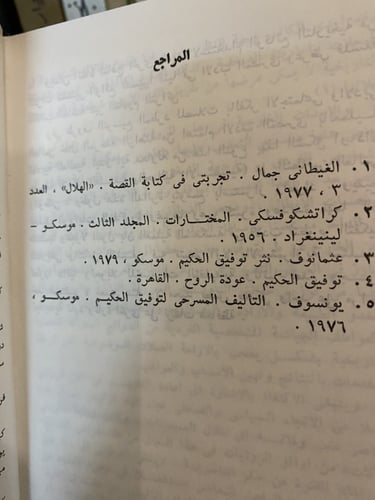 المراجع
١ . الغيطانى جمال . تجربتى فى كتابة القصة . «الهلال» ، العدد
٣ ، ١٩٧٧ .
٢ . كراتشكوفسكي . المختـــارات . المجلد الثالث . موسكو –
لينينغراد . ١٩٥٦ .
٣ . عثمانوف . نثر توفيق الحكيم . موسكو ، ١٩٧٩ .
٤ . توفيق الحكيم . عودة الروح . القاهرة .
٥ . يونسوف . التاليف المسرحى لتوفيق الحكيـم . موسكــو ،
١٩٧٦ .